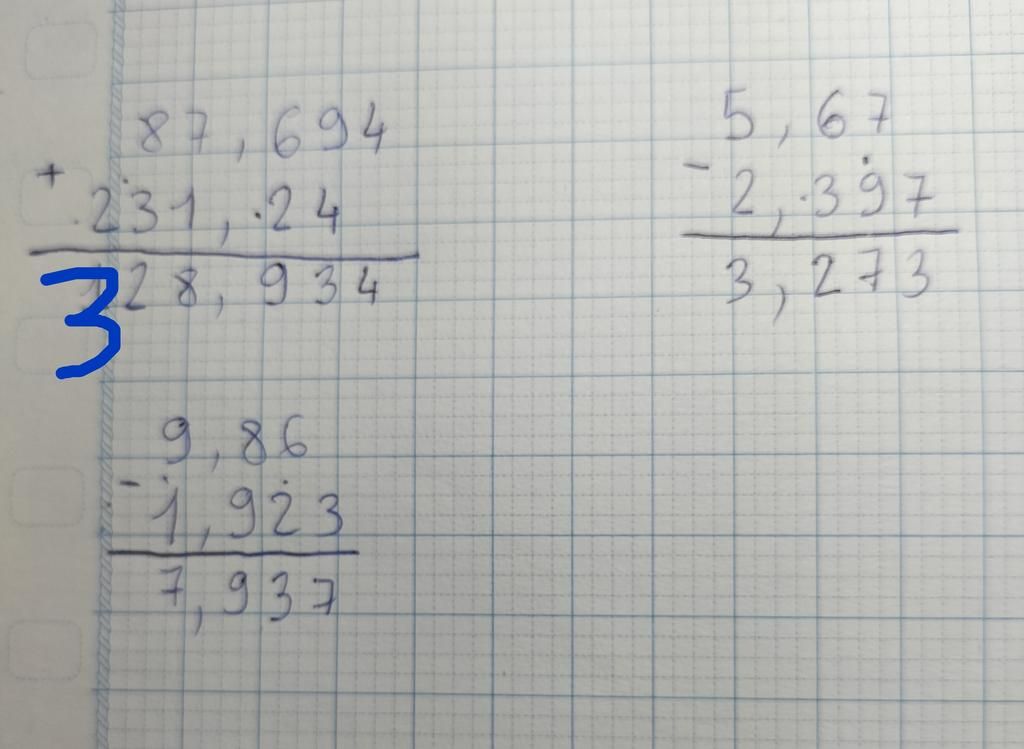 87,694
+ 231,24
328,934
5,67
- 2,397
3,273
9,86
- 1,923
7,937